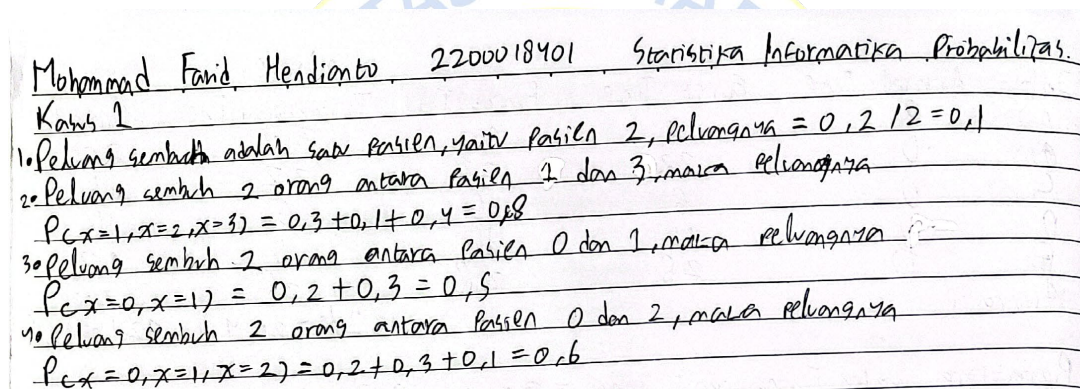 Mohammad Farid Hendianto 2200018401 Statistika Informatika Probabilitas.
Kasus 1
1. Peluang sembuh adalah satu pasien, yaitu pasien 2, peluangnya = 0,2 / 2 = 0,1
2. Peluang sembuh 2 orang antara pasien 1 dan 3, maka peluangnya
P(x=1, x=2, x=3) = 0,3 + 0,1 + 0,4 = 0,8
3. Peluang sembuh 2 orang antara Pasien 0 dan 1, maka peluangnya
P(x=0, x=1) = 0,2 + 0,3 = 0,5
4. Peluang sembuh 2 orang antara Pasien 0 dan 2, maka peluangnya
P(x=0, x=1, x=2) = 0,2 + 0,3 + 0,1 = 0,6